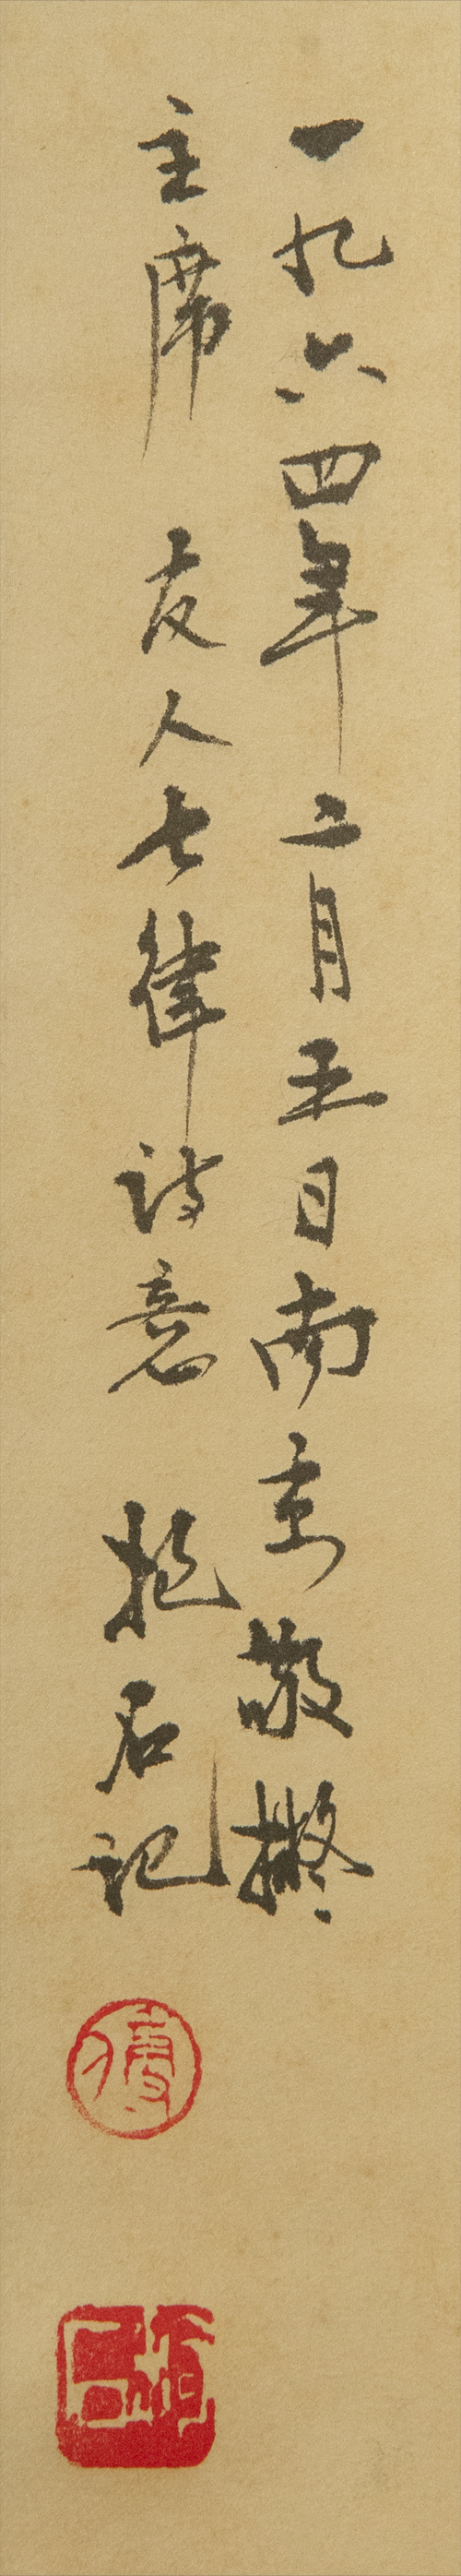 一九六四年二月五日南京敬拟
主席 友人七律诗意 抱石记
傅